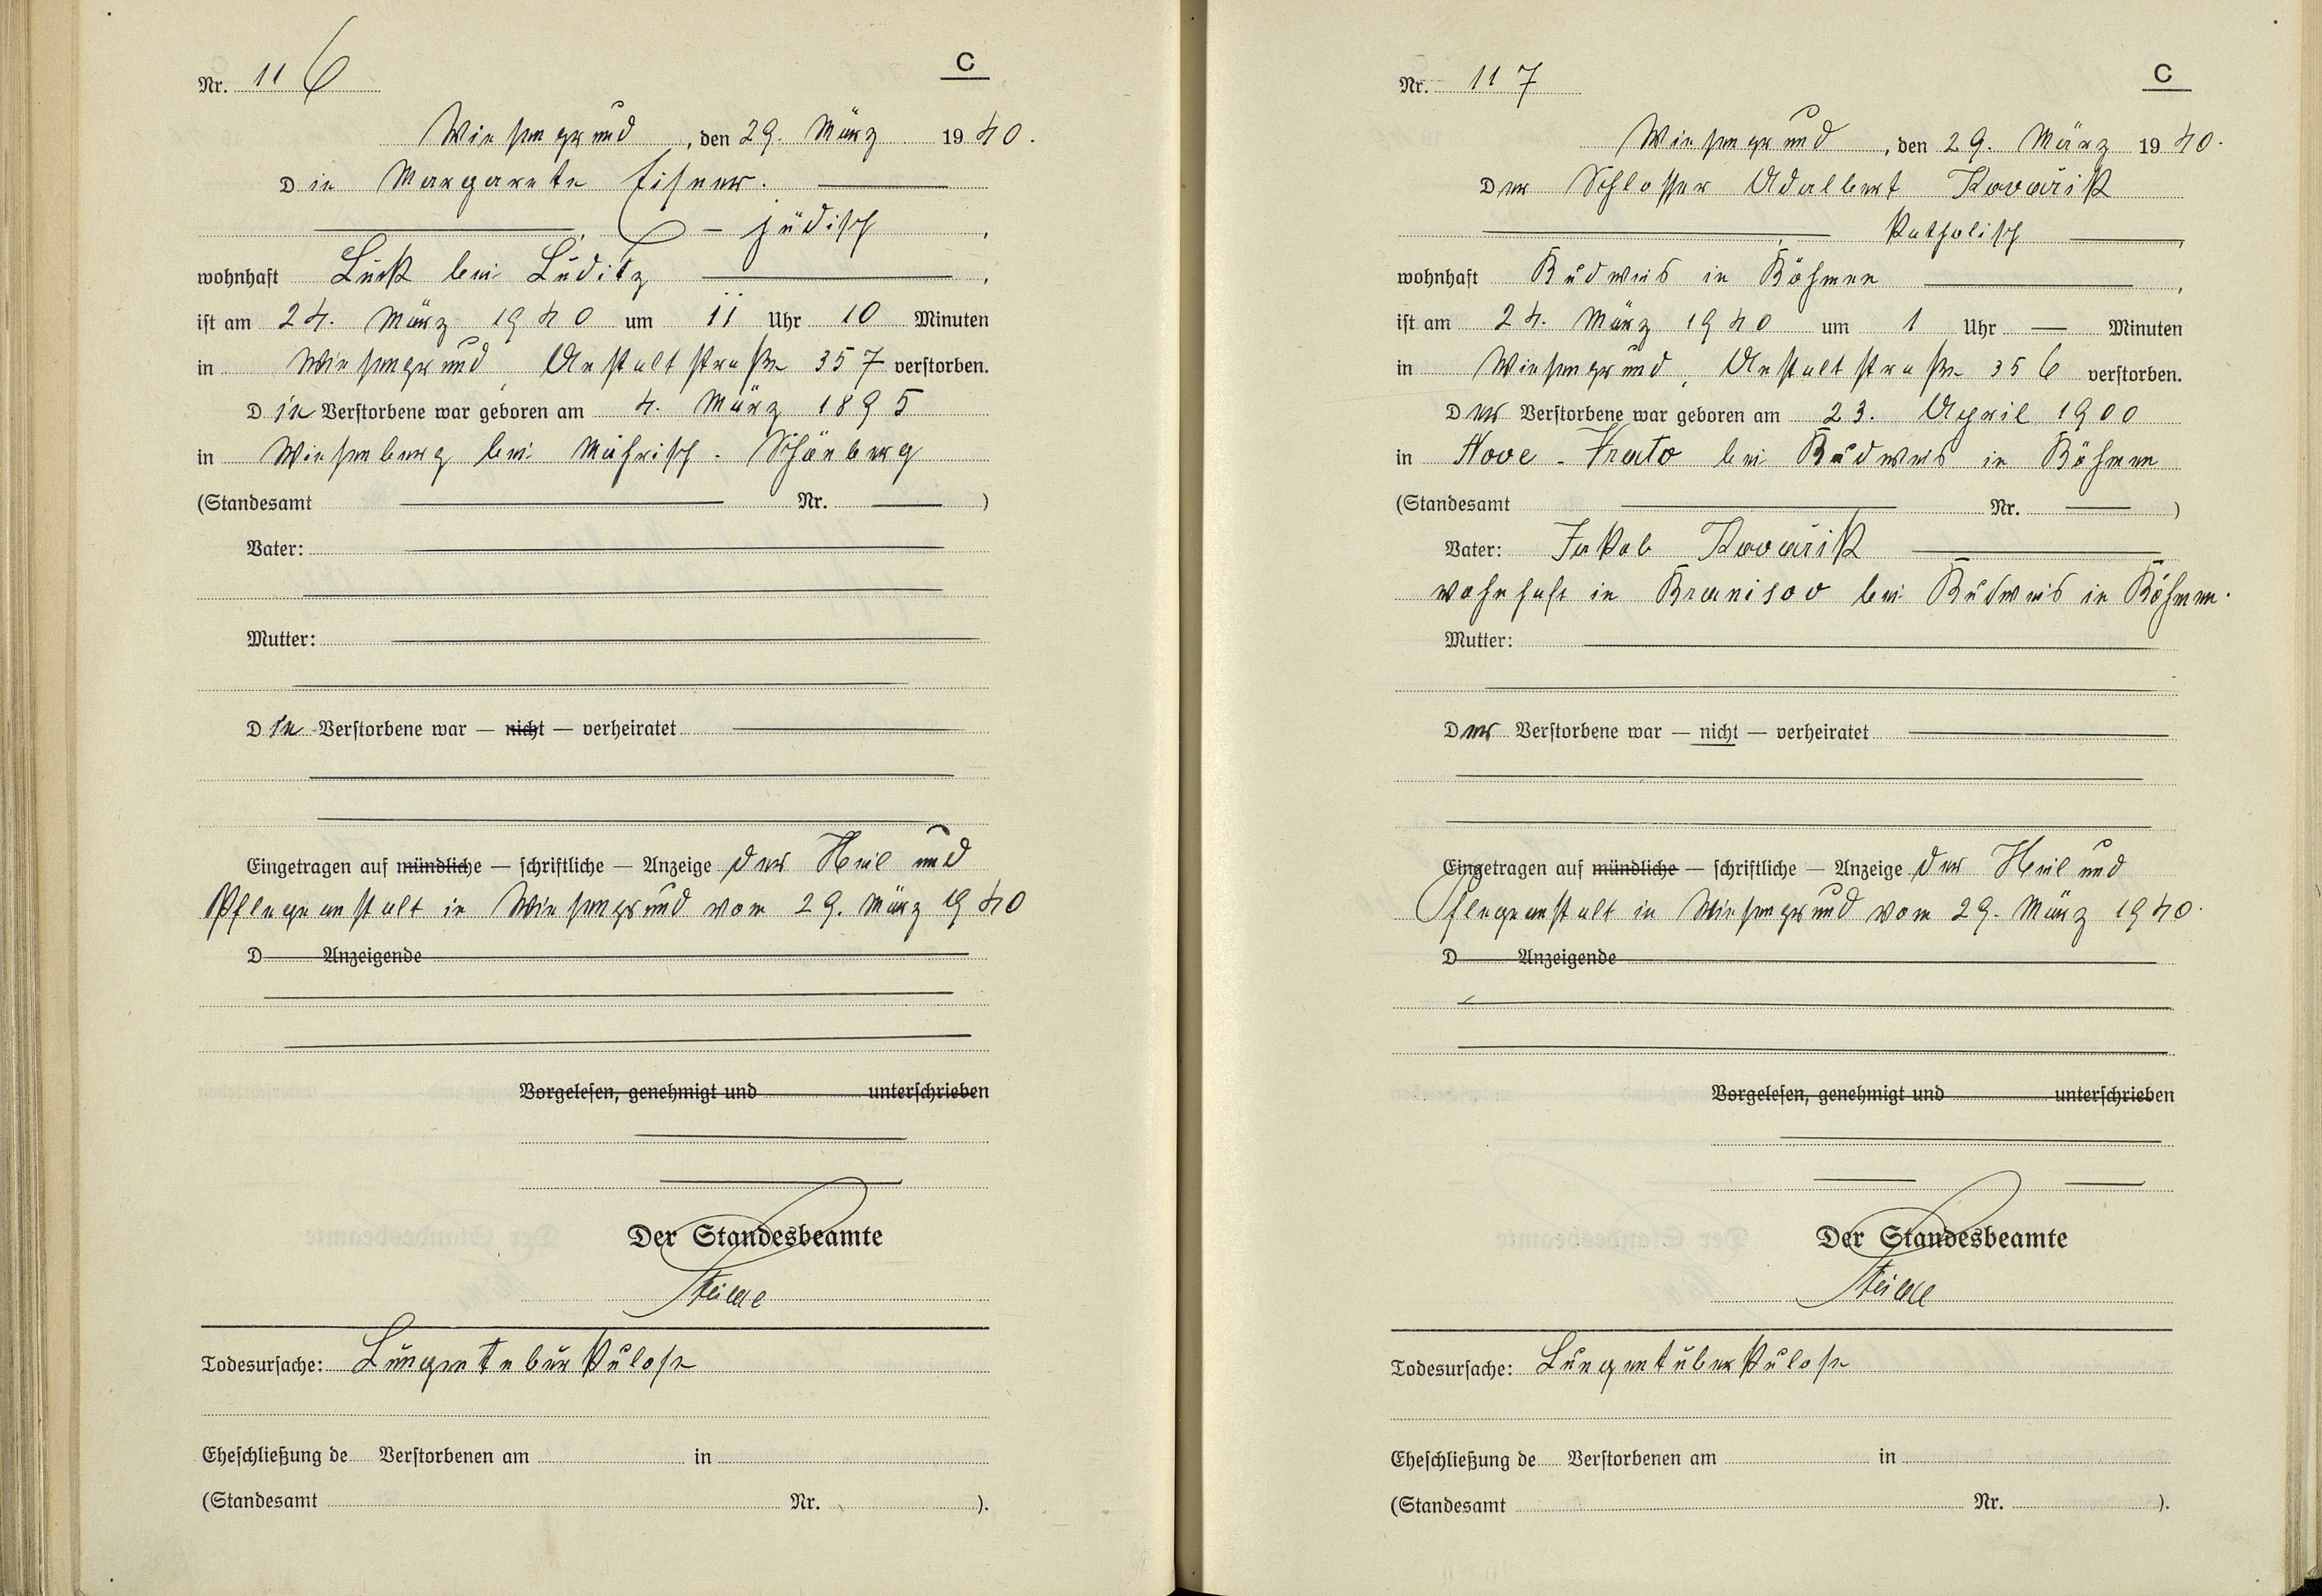 Nr. 116
C
Wiesengrund, den 29. März 1940.
Die Margarete Eisner.
— jüdisch,
wohnhaft Luck bei Luditz,
ist am 24. März 1940 um 11 Uhr 10 Minuten
in Wiesengrund, Anstaltstraße 357 verstorben.
Die Verstorbene war geboren am 4. März 1895
in Wiesenberg bei Mährisch-Schönberg
(Standesamt — Nr. —)
Vater: —
Mutter: —
Die Verstorbene war — nicht — verheiratet
Eingetragen auf mündliche — schriftliche — Anzeige der Heil und
Pflegeanstalt in Wiesengrund vom 29. März 1940
D Anzeigende
Vorgelesen, genehmigt und unterschrieben
Der Standesbeamte
Todesursache: Lungentuberkulose
Eheschließung de Verstorbenen am in
(Standesamt Nr. ).
Nr. 117
C
Wiesengrund, den 29. März 1940.
Der Schlosser Adalbert Kovařik
katholisch —,
wohnhaft Budweis in Böhmen —,
ist am 24. März 1940 um 1 Uhr — Minuten
in Wiesengrund, Anstaltstraße 356 verstorben.
Der Verstorbene war geboren am 23. April 1900
in Nove-Hrato bei Budweis in Böhmen
(Standesamt — Nr. —)
Vater: Jakob Kovařik —
wohnhaft in Branisov bei Budweis in Böhmen.
Mutter: —
Der Verstorbene war — nicht — verheiratet
Eingetragen auf mündliche — schriftliche — Anzeige der Heil und
Pflegeanstalt in Wiesengrund vom 29. März 1940.
D Anzeigende
Vorgelesen, genehmigt und unterschrieben
Der Standesbeamte
Todesursache: Lungentuberkulose
Eheschließung de Verstorbenen am in
(Standesamt Nr. ).